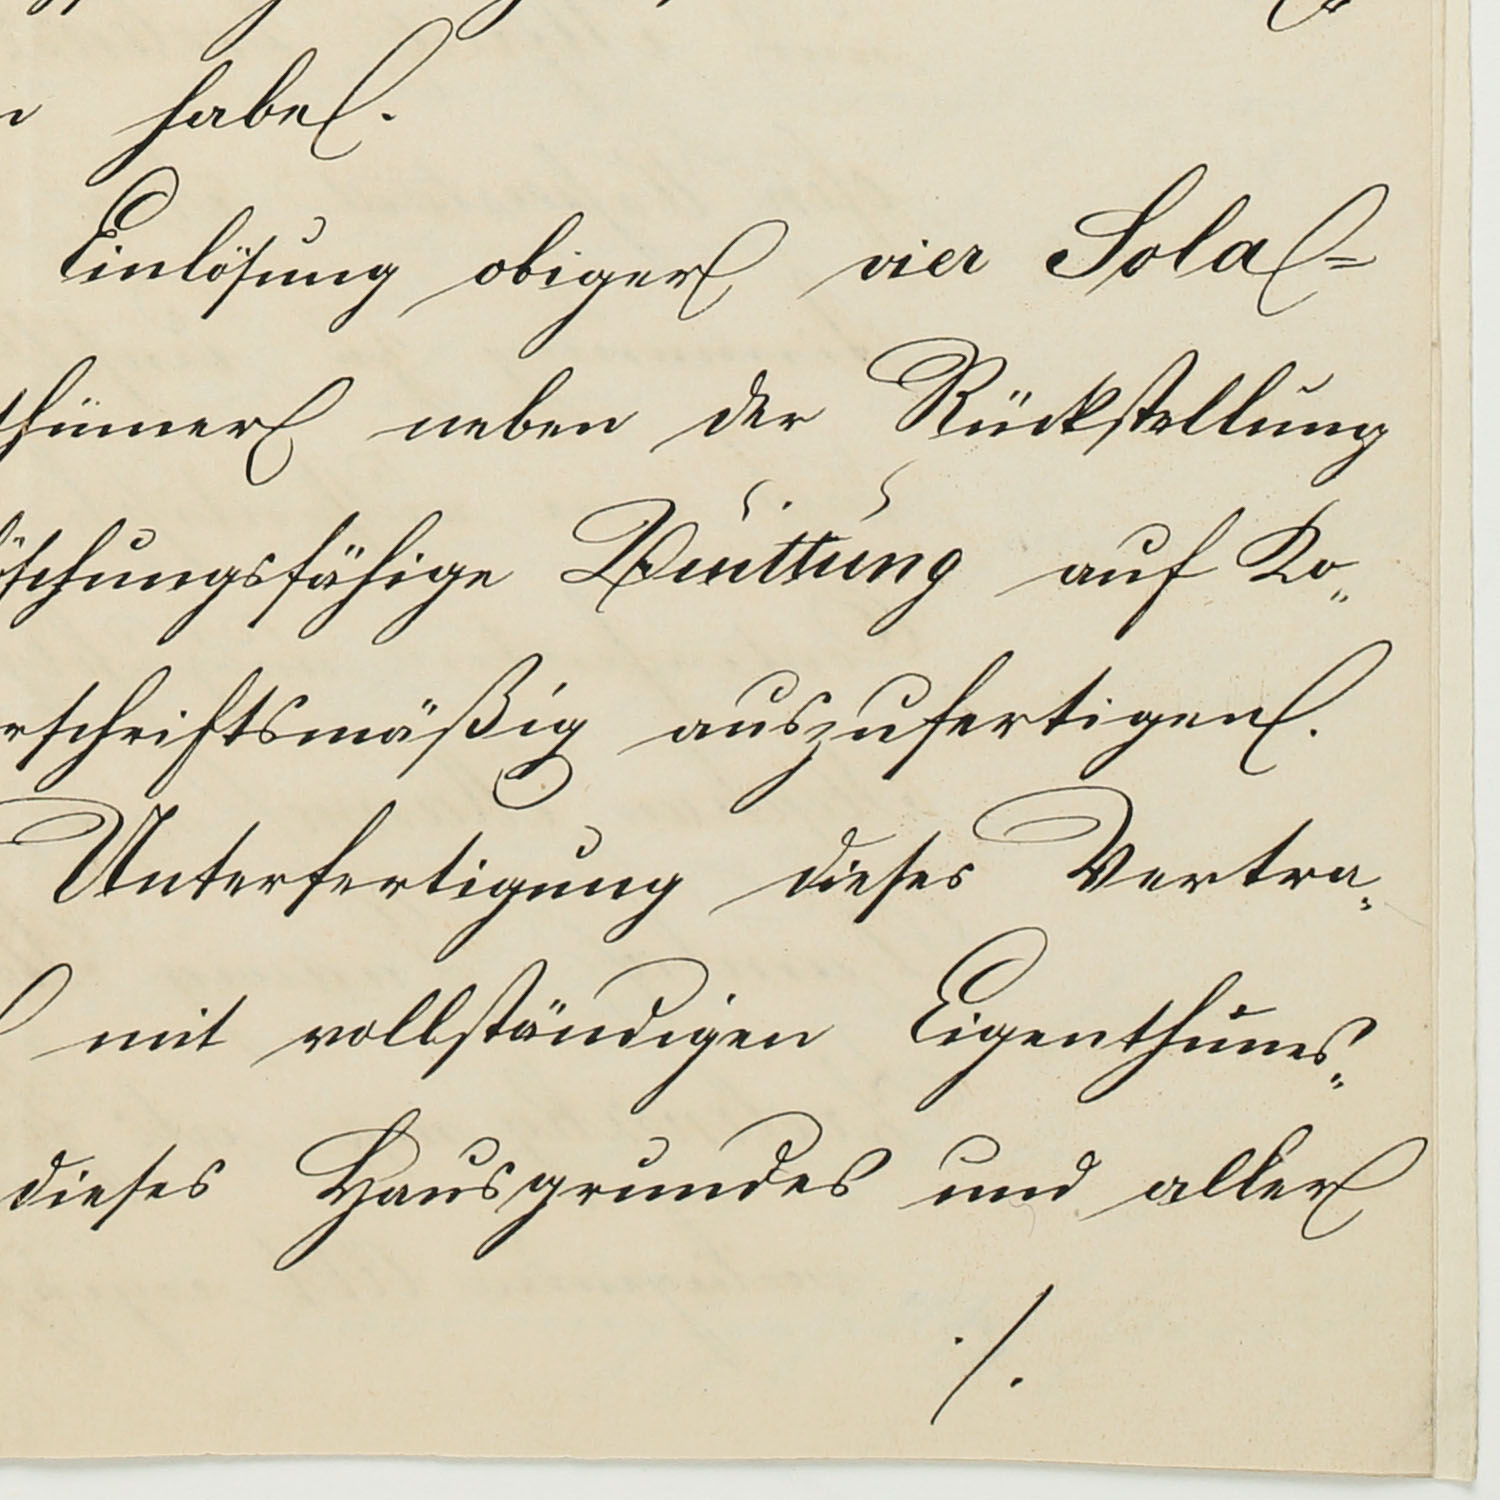 haben.
Einlösung obiger vier Sola-
thümer neben der Rückstellung
öschungsfähige Quittung auf Ko„
rschriftsmäßig auszufertigen.
Unterfertigung dieses Vertra„
mit vollständigen Eigenthums„
dieses Hausgrundes und aller
./.